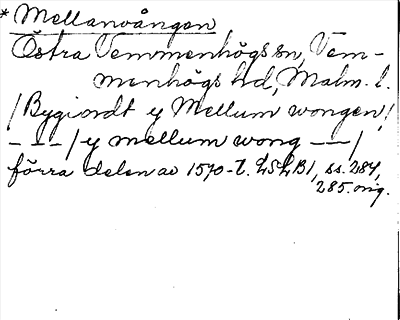 * Mellanvången
Östra Vemmenhögs sn, Vem-
menhögs hd, Malm. l.
/Bygiordt y Mellum wongen/
- - - /y mellum wong - - -/
förra delen av 1570-t. ss. 284,
285. orig.